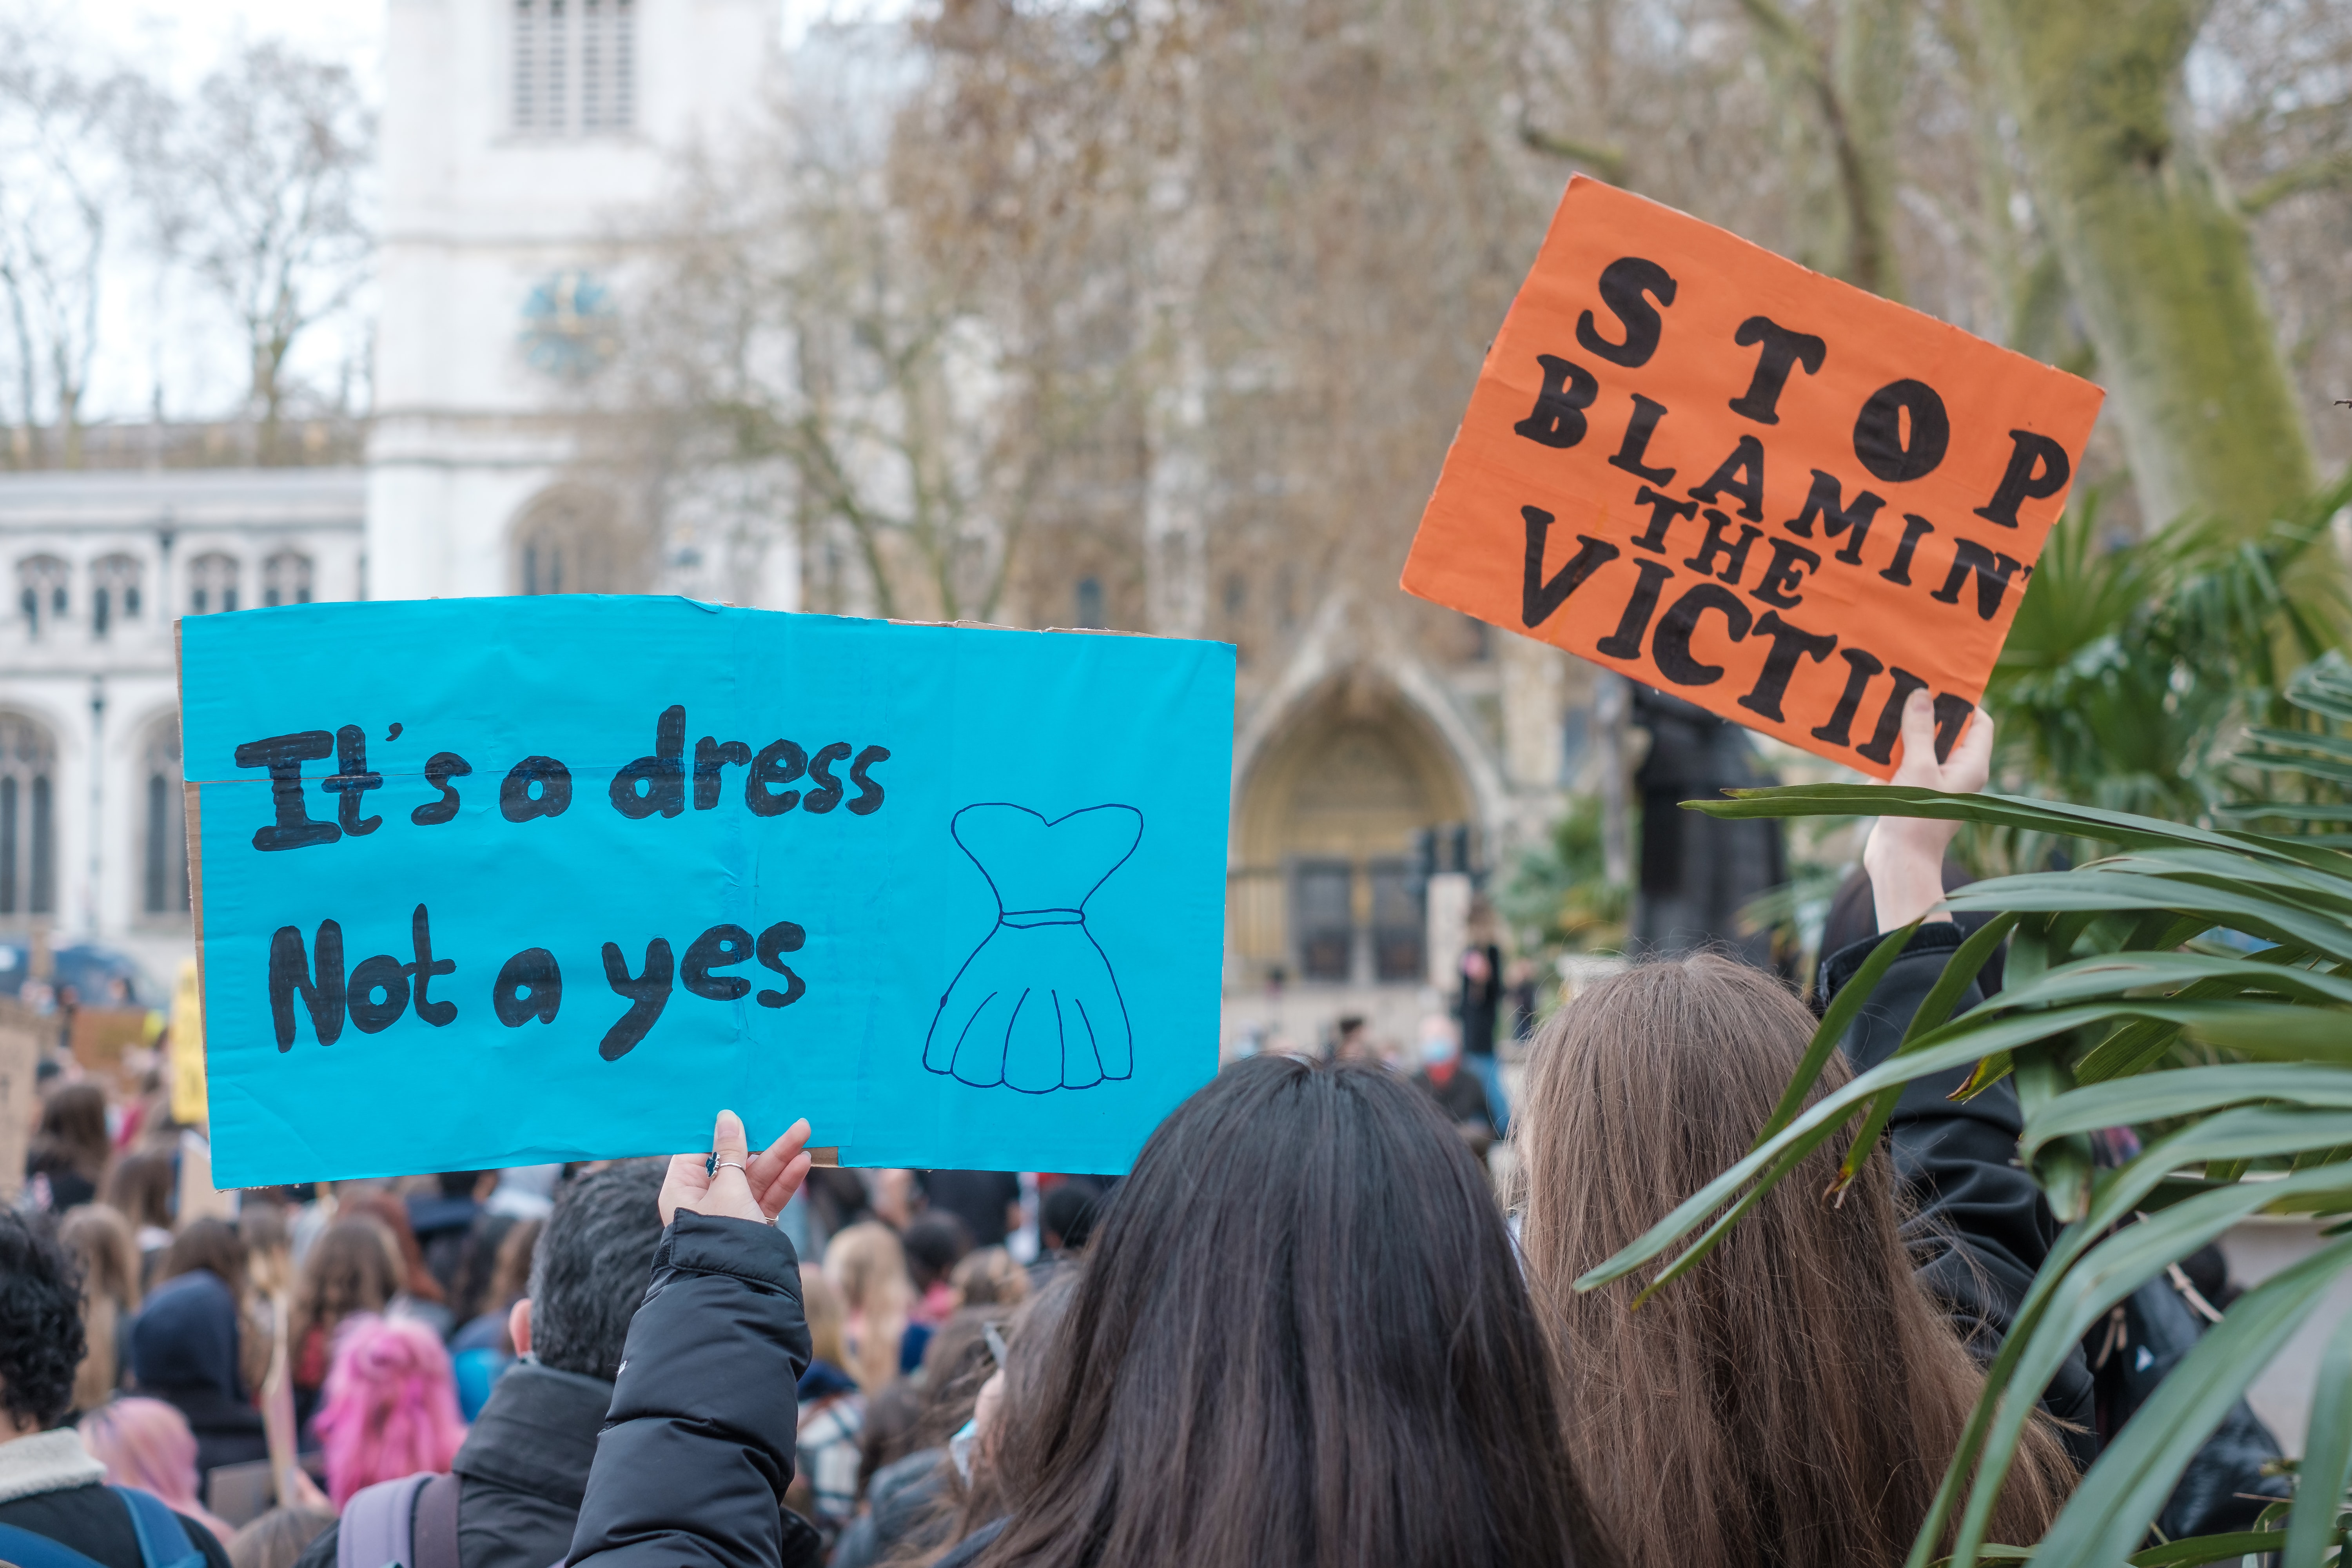 It's a dress
Not a yes
STOP
BLAMIN'
THE
VICTIM